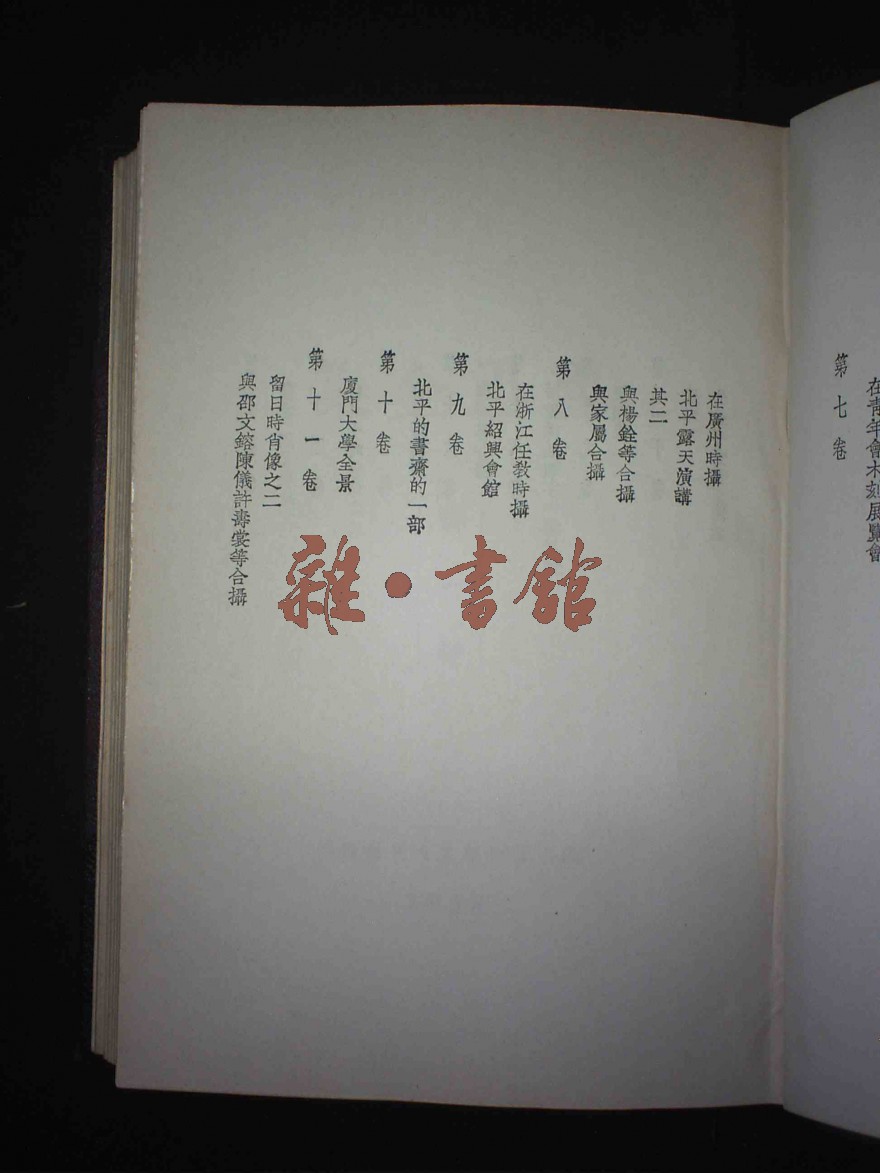 在青年會木刻展覽會
第七卷
在廣州時攝
北平露天演講
其二
與楊銓等合攝
與家屬合攝
第八卷
在浙江任教時攝
北平紹興會館
第九卷
北平的書齋的一部
第十卷
廈門大學全景
第十一卷
留日時肖像之二
與邵文鎔陳儀許壽裳等合攝
雜·書館